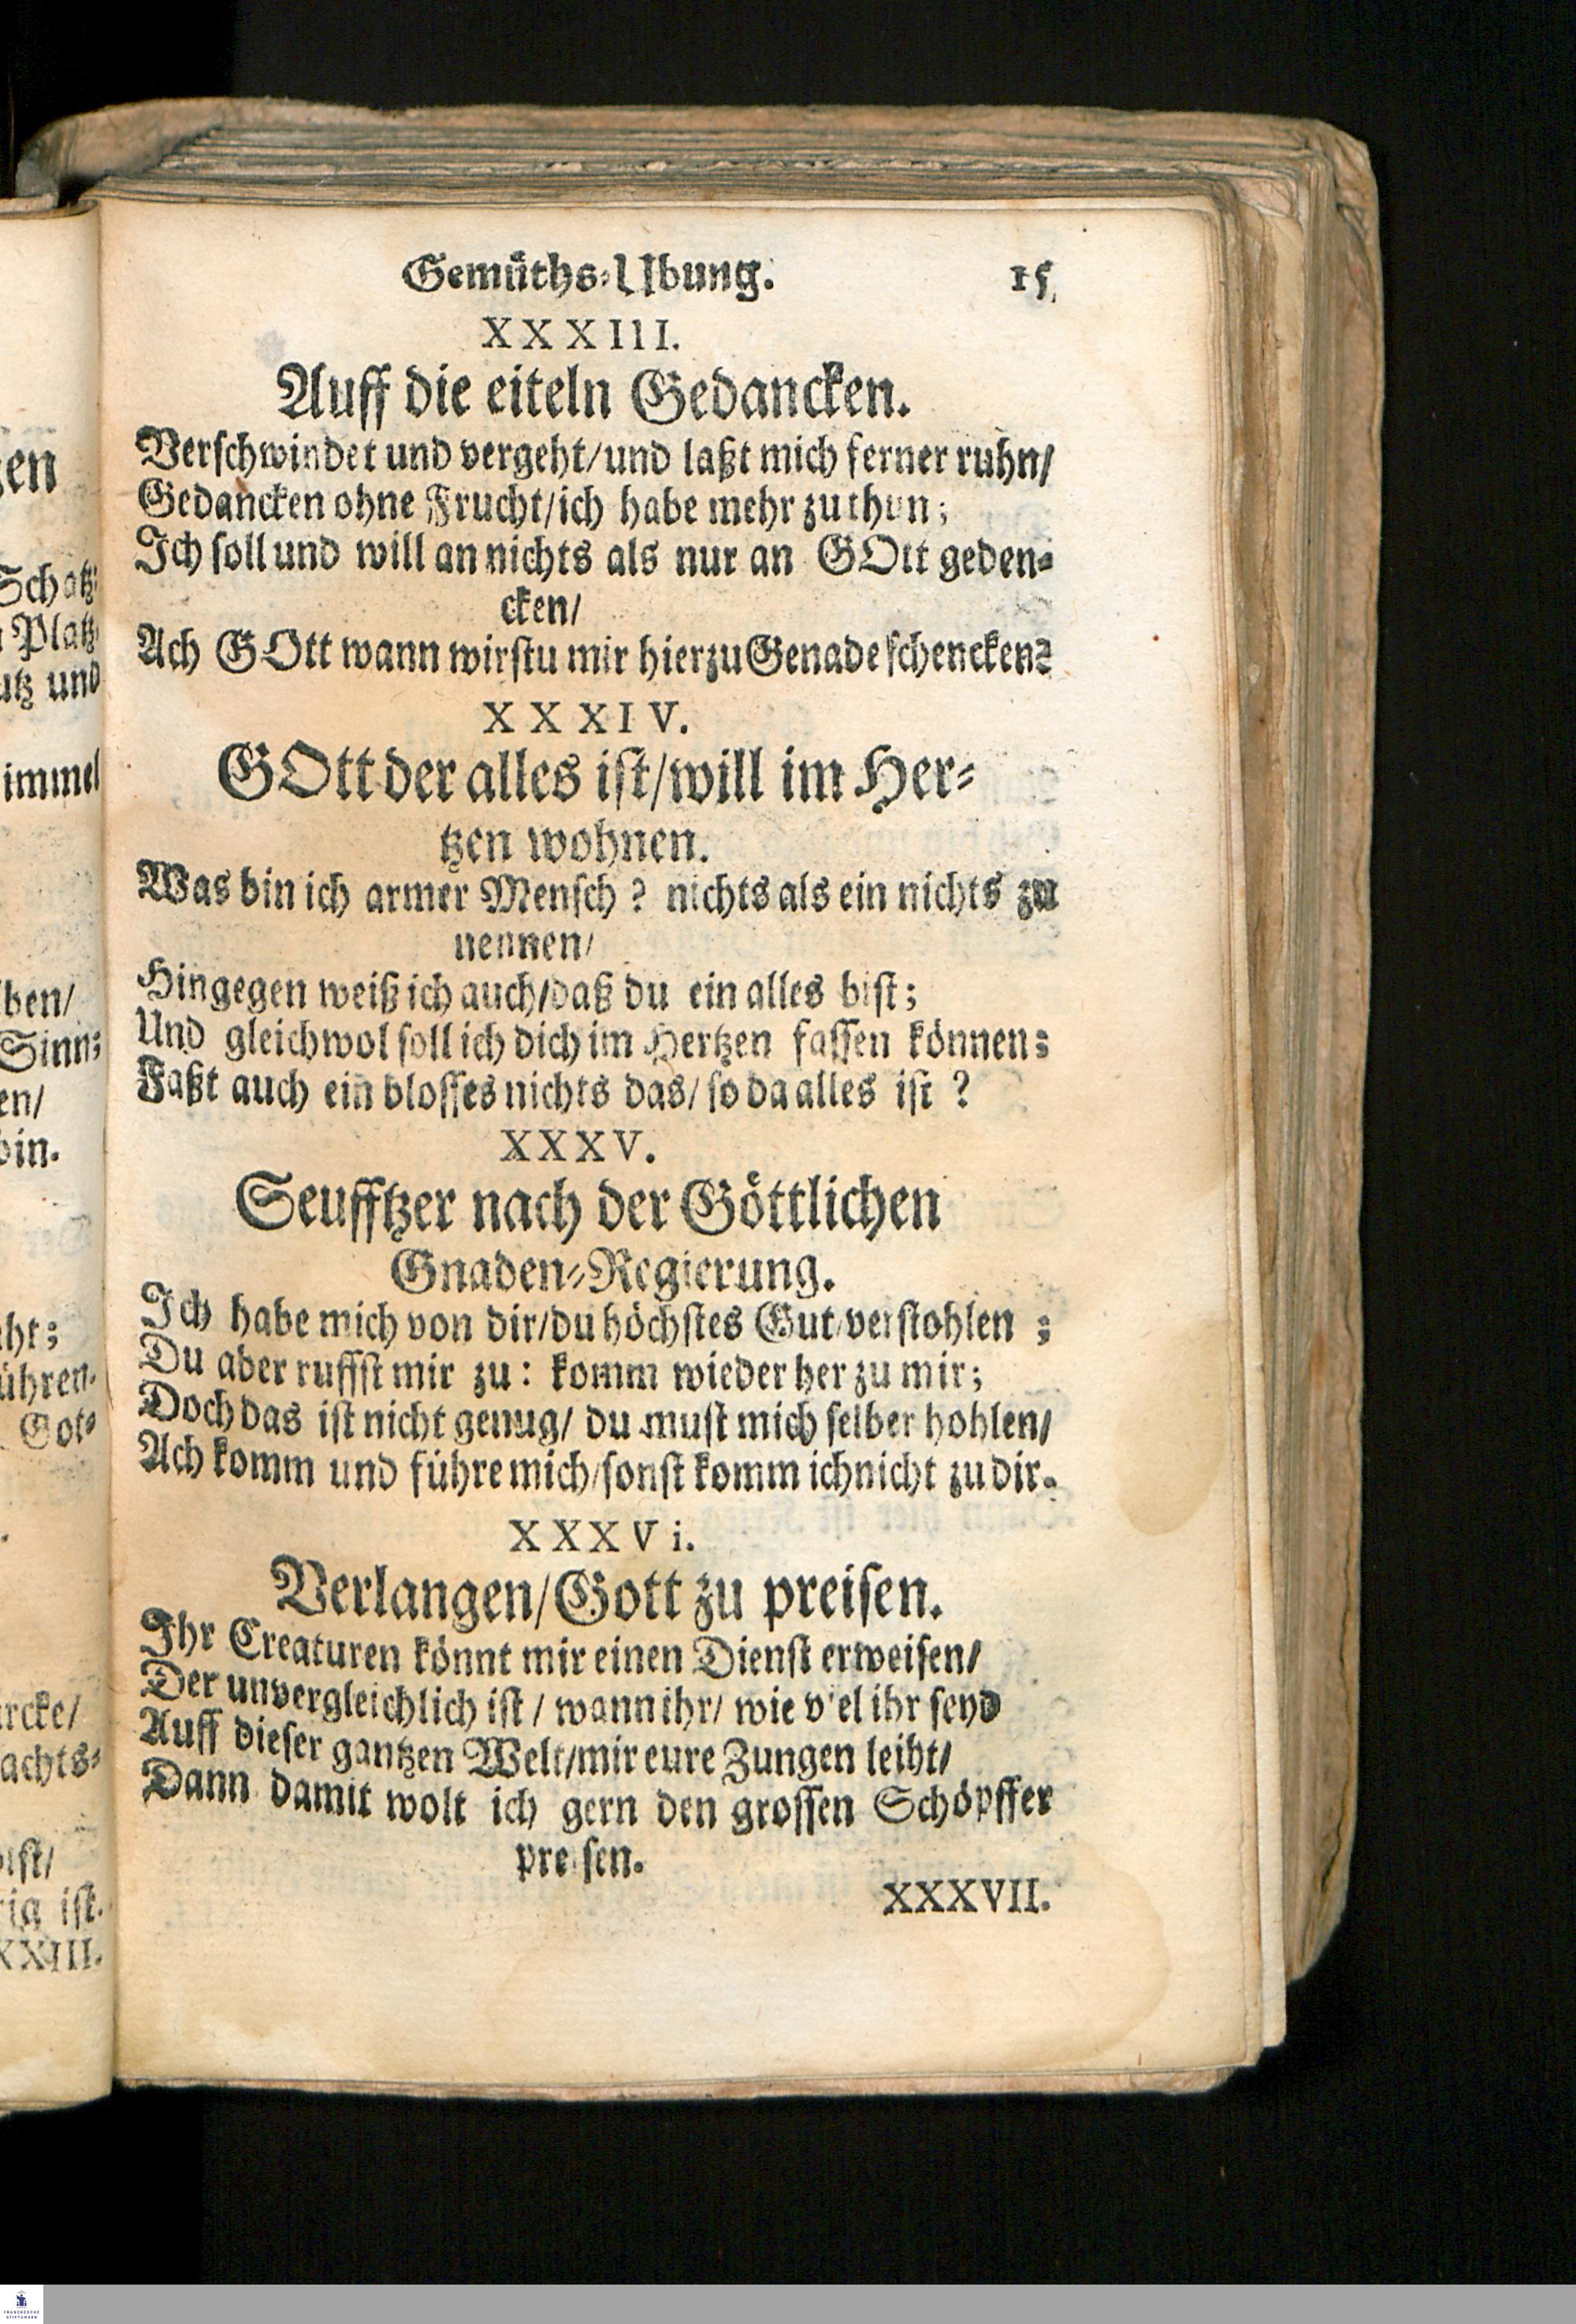 Gemüths-Ubung. 15.
XXXIII.
Auff die eiteln Gedancken.
Verschwindet und vergeht/und laßt mich ferner ruhn/
Gedancken ohne Frucht/ich habe mehr zu thun;
Ich soll und will an nichts als nur an GOtt geden-
cken/
Ach GOtt wann wirstu mir hierzu Genade schencken?
XXXIV.
GOtt der alles ist/will im Her-
tzen wohnen.
Was bin ich armer Mensch? nichts als ein nichts zu
nennen/
Hingegen weiß ich auch/daß du ein alles bist;
Und gleichwol soll ich dich im Hertzen fassen können:
Faßt auch ein blosses nichts das/so da alles ist?
XXXV.
Seufftzer nach der Göttlichen
Gnaden-Regierung.
Ich habe mich von dir/du höchstes Gut/verstohlen;
Du aber ruffst mir zu: komm wieder her zu mir;
Doch das ist nicht genug/du must mich selber hohlen/
Ach komm und führe mich/sonst komm ich nicht zu dir.
XXXVi.
Verlangen/Gott zu preisen.
Ihr Creaturen könnt mir einen Dienst erweisen/
Der unvergleichlich ist/wann ihr/wie viel ihr seyd
Auff dieser gantzen Welt/mir eure Zungen leiht/
Dann damit wolt ich gern den grossen Schöpffer
preisen.
XXXVII.
en
Schatz
Platz
und
immel
ben/
Sinn;
en/
hin.
ht;
ühren.
Got-
rcke/
achts-
ist/
ig ist.
XXIII.
FRANCKESCHE
STIFTUNGEN